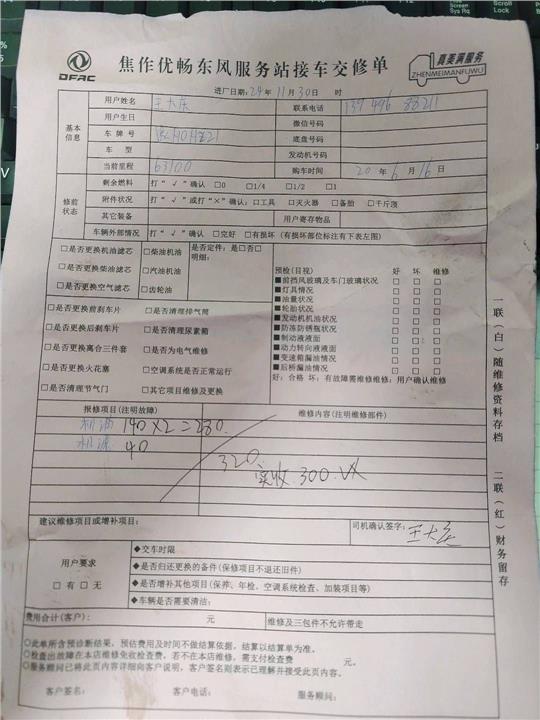 DFAC
焦作优畅东风服务站接车交修单
真美满服务
ZHENMEIMANFUWU
进厂日期:24年11月30日 时
基本信息
用户姓名 联系电话
用户生日 微信号码
车牌号 底盘号码
车型 发动机号码
当前里程 63100 购车时间 20年6月16日
修前状态
剩余燃料 打“√”确认 □0 □1/4 □1/2 □1
附件状况 打“√”或打“×”确认:□工具 □灭火器 □备胎 □千斤顶
其它装备 用户寄存物品
车辆外部情况 打“√”确认 □完好 □有损坏(有损坏部位标注有下表左图)
□是否更换机油滤芯 □柴油机油 是否定件:是□否□
□是否更换柴油滤芯 □汽油机油 明细:
□是否更换空气滤芯 □齿轮油
□是否更换前刹车片 □是否清理排气筒
□是否更换后刹车片 □是否清理尿素箱
□是否更换离合三件套 □是否为电气维修
□是否更换火花塞 □空调系统是否正常运行
□是否清理节气门 □其它项目维修及更换
预检(目视) 好 坏 维修
■前挡风玻璃及车门玻璃状况 □ □ □
■灯具情况 □ □ □
■油量状况 □ □ □
■轮胎状况 □ □ □
■发动机机油状况 □ □ □
■防冻防锈瓶状况 □ □ □
■制动液液面 □ □ □
■动力转向液液面 □ □ □
■变速箱漏油情况 □ □ □
■后桥漏油情况 □ □ □
好:合格 坏:有故障需维修维修:用户确认维修
报修项目(注明故障) 维修内容(注明维修部件)
机油 140×2=280.
机滤 40
320
实收.300.
建议维修项目或增补项目: 司机确认签字:
用户要求
□有□无
◆交车时限
◆是否归还更换的备件(保修项目不退还旧件)
◆是否增补其他项目(保养、年检、空调系统检查、加装项目等)
◆车辆是否需要清洁:
费用合计(客户): 元 维修及三包件不允许带走
◇此单所含预诊断结果,预估费用及时间不做结算依据,结算以结算单为准。
◇检查出故障在本店维修免收检查费,若不在本店维修,需支付检查费 元。
◇服务顾问已将此页内容详细向客户说明,客户签名则表示已理解并接受此页内容。
客户签名: 客户电话: 服务顾问:
一联(白)随维修资料存档
二联(红)财务留存